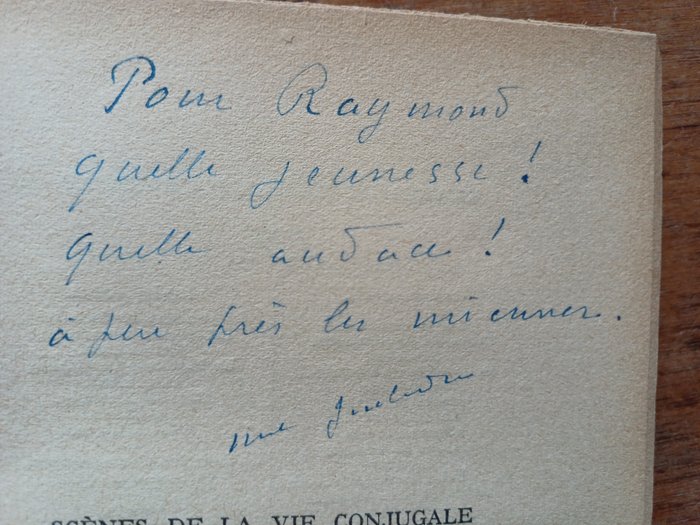 Pour Raymond
quelle jeunesse !
quelle audace !
à peu près les miennes.
SCÈNES DE LA VIE CONJUGALE